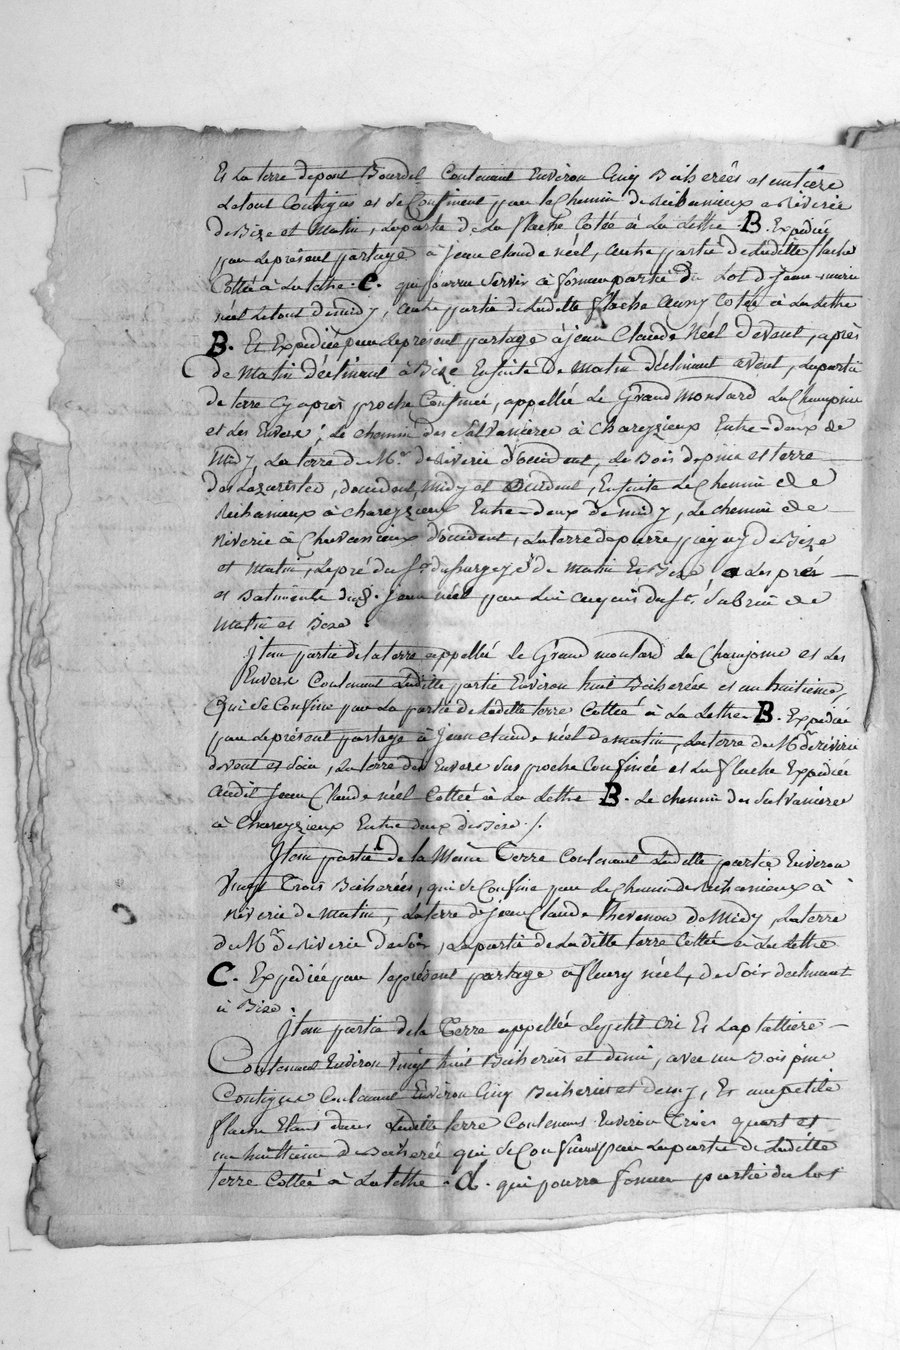 Et la terre dupont Bourdel Contenant Environ Cinq Bicherées et
Letout Contigus et se Confinent par le Chemin de Richanieux a Riverie
de Bize et Matin, la partie de la flache Cotée à La Lettre . B . Expediée
par le présent partage à Jean Claude néel, autre partie de Laditte flache
Cottée à La lettre . C . qui pourra servir à former partie du Lot de Jean marie
néel Letout de midy, autre partie de Laditte flache aussy Cotée à La Lettre
B . Et Expediée par le present partage à jean Claude Néel devant, après
de Matin déclinant à Bize Ensuite de matin déclinant avent, La partie
de terre Cy après proche Confinée, appellée Le Grand Montard La Champine
et Les Envers, Le chemin des Salvanieres à Chareyzieux Entre-deux de
Midy, La terre du Mr. de Riverie d'occident, Le Bois de pin et terre
des Lazaristes, d'occident, Midy et occident, Ensuite Le Chemin de
Richanieux à Chareyzieux Entre-deux de midy, Le chemin de
Riverie à Chavassieux d'occident, La terre de pierre de Bize
et Matin, Le pré du Sr. de matin Et Bize, Les prés
et Batiments dud. Jean néel par Lui acquis du Sr. de
Matin et Bize
Jtem partie de la terre appellée Le Grand montard La Champine et Les
Envers Contenant Laditte partie Environ huit Bicherées et un huitieme,
Qui se Confine par La partie de Laditte terre Cottée à La Lettre B . Expediée
par Le présent partage à Jean Claude néel de matin, La terre du Mr. de riverie
devent et Soir, La terre des Envers Sus proche Confinée et La flache Expediée
audit Jean Claude néel Cottée à La Lettre . B . Le chemin des Salvanieres
à Chareyzieux Entre deux de Bize ./.
Jtem partie de la Même Terre Contenant Laditte partie Environ
Vingt Trois Bicherées, qui se Confine par Le Chemin de Richanieux à
Riverie de Matin, La terre de Jean Claude Thevenon de Midy, La terre
du Mr. de Riverie de Soir, La partie de Laditte terre Cottée à La Lettre
C . Expediée par le présent partage à fleury néel, de Soir declinant
à Bize .
Jtem partie de la Terre appellée Le petit Cri Et La plattiere
Contenant Environ Vingt huit Bicherées et demi, avec un Bois pin
Contigue Contenant Environ Cinq Bicherées et demy, Et une petite
flache Etant dans Laditte terre Contenant Environ Trois quart et
un huittieme de Bicherée qui se Confinent par La partie de Laditte
terre Cottée à La lettre . d . qui pourra former partie du lot